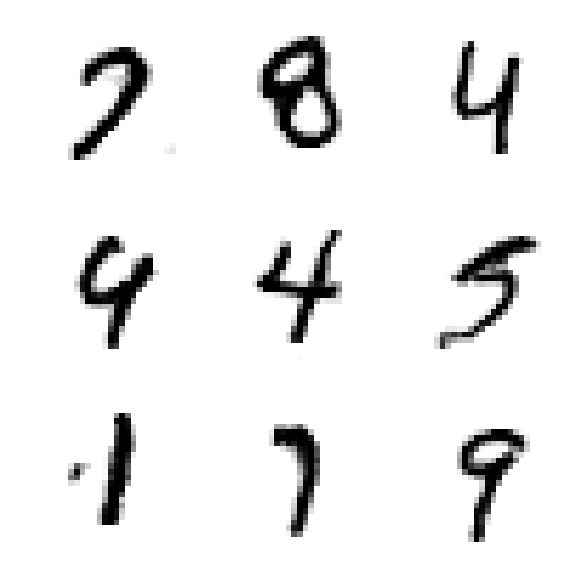 7 8 4
9 4 5
1 7 9